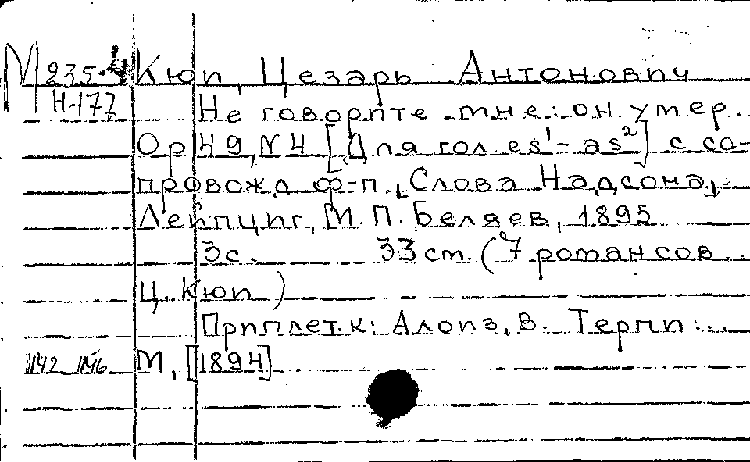 М 235-4 Кюи, Цезарь Антонович
Н-177 Не говорите мне: он умер.
Op 49, N 4 [Для гол. es¹-as²] с со-
провожд. ф-п. Слова Надсона.
Лейпциг, М. П. Беляев, 1895
3с. 33 см. (7 романсов
Ц. Кюи)
Приплет. к: Алоиз, В. Терпи...
М, [1894]